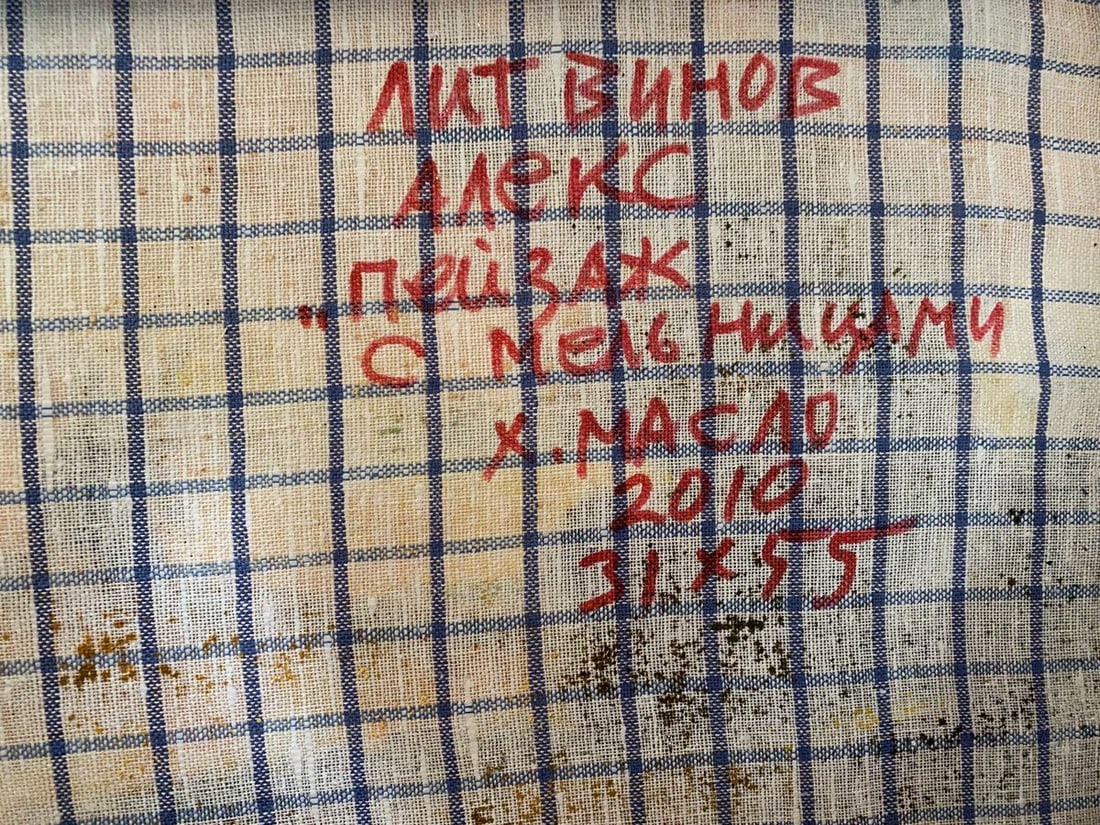 ЛИТВИНОВ
АЛЕКС
„ПЕЙЗАЖ
С МЕЛЬНИЦАМИ
Х. МАСЛО
2010
31х55